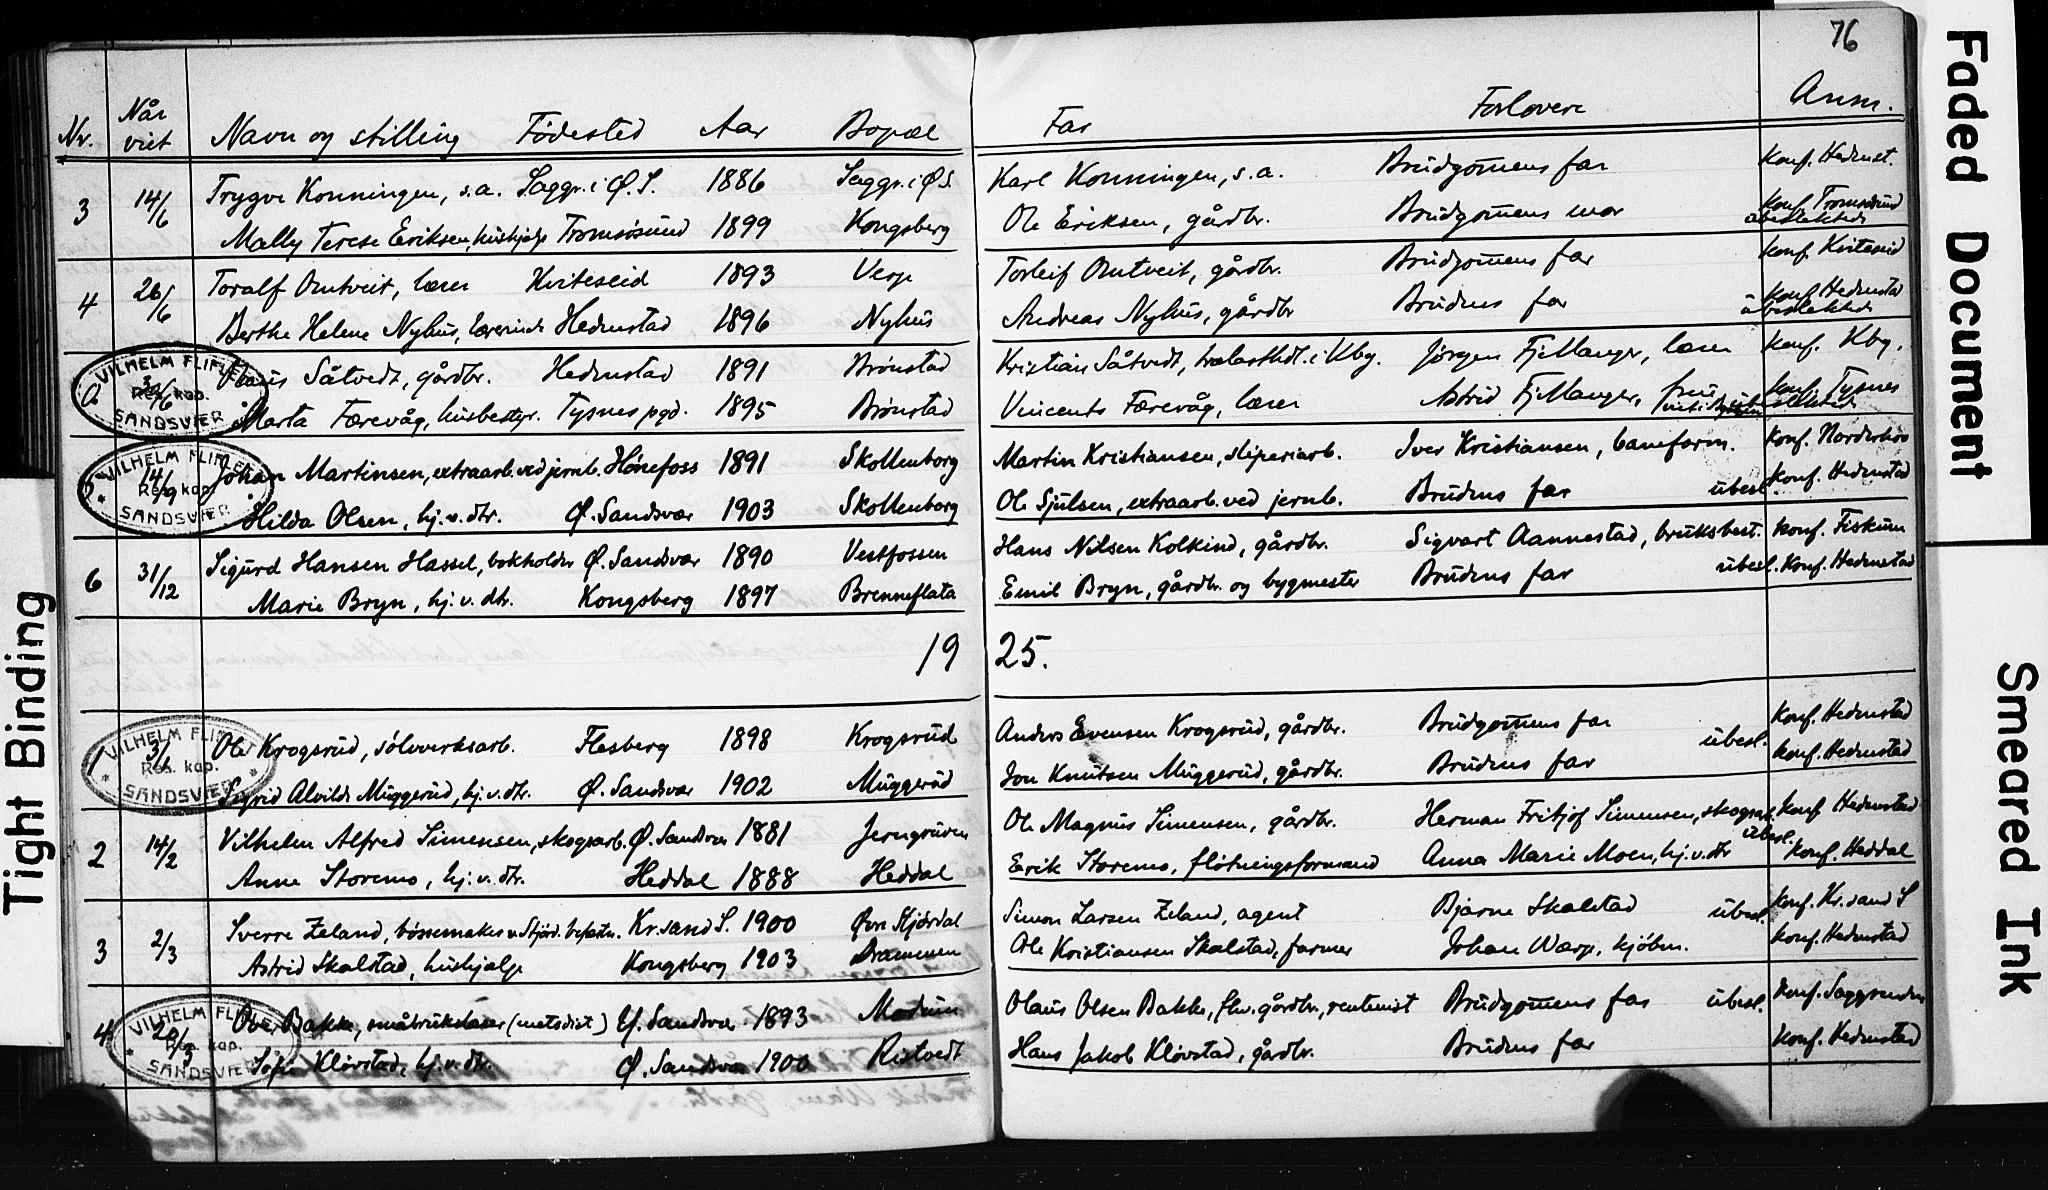 76
Nr. Når viet Navn og stilling Fødested Aar Bopæl Far Forlovere Anm.
3 14/6 Trygve Konningen, s.a. Saggr. i Ø.S. 1886 Saggr. i Ø.S. Karl Konningen, s.a. Brudgom̄ens far Konf. Hedenst.
Mally Terese Eriksen, hushjelp Tromsøsund 1899 Kongsberg Ole Eriksen, gårdbr. Brudgom̄ens mor Konf. Tromsøsund
ubeslektede
4 26/6 Toralf Omtveit, lærer Kviteseid 1893 Verp Torleif Omtveit, gårdbr. Brudgom̄ens far Konf. Kviteseid
Berthe Helene Nyhus, lærerinde Hedenstad 1896 Nyhus Andreas Nyhus, gårdbr Brudens far Konf. Hedenstad
ubeslektede
VILHELM FLIFLET
Res. kap.
SANDSVÆR
a 30/6 Klaus Såtvedt, gårdbr. Hedenstad 1891 Brønstad Kristian Såtvedt, trelasthdl. i Kbg. Jørgen Fjellanger, lærer Konf. Kbg.
Marta Færevåg, husbestyr. Tysnes pgd. 1895 Brønstad Vincents Færevåg, lærer Astrid Fjellanger, frue Konf. Tysnes
VILHELM FLIFLET
Res. kap.
SANDSVÆR
5 14/9 Johan Martinsen, extraarb. ved jernb. Hønefoss 1891 Skollenborg Martin Kristiansen, sliperiarb. Iver Kristiansen, baneform. Konf. Norderhov
Hilda Olsen, hj.v. dtr. Ø. Sandsvær 1903 Skollenborg Ole Sjulsen, extraarb. ved jernb. Brudens far ubesl. Konf. Hedenstad
6 31/12 Sigurd Hansen Hassel, bokholder Ø. Sandsvær 1890 Vestfossen Hans Nilsen Kolkind, gårdbr. Sigvart Aannestad, bruksbest. Konf. Fiskum
Marie Bryn, hj. v. dtr. Kongsberg 1897 Brenneflata Emil Bryn, gårdbr. og bygmester Brudens far ubesl. Konf. Hedenstad
19 25.
VILHELM FLIFLET
Res. kap.
SANDSVÆR
1 3/1 Ole Krogsrud, sølvverksarb. Flesberg 1898 Krogsrud Anders Evensen Krogsrud, gårdbr. Brudgom̄ens far Konf. Hedenstad
Sigrid Alvilde Muggerud, hj.v. dtr. Ø. Sandsvær 1902 Muggerud Jon Knutsen Muggerud, gårdbr. Brudens far ubesl. Konf. Hedenstad
2 14/2 Vilhelm Alfred Simensen, skogsarb. Ø. Sandsvær 1881 Jerngruven Ole Magnus Simensen, gårdbr. Herman Fritjof Simensen, skogsarb. Konf Hedenstad
Anne Storemo, hj. v. dtr. Heddal 1888 Heddal Erik Storemo, fløtningsformand Anna Marie Moen, hj.v. dtr ubesl. Konf. Heddal
3 2/3 Sverre Zeland, bøssemaker v. Stjørd. befæstn. Kr.sand S. 1900 Øvre Stjørdal Simon Larsen Zeland, agent Bjarne Skalstad ubesl. Konf. Kr.sand S
Astrid Skalstad, hushjælp Kongsberg 1903 Drammen Ole Kristiansen Skalstad, farmer Johan Warp, kjøbm. Konf. Hedenstad
VILHELM FLIFLET
Res. kap.
SANDSVÆR
4 20/3 Ove Bakke, småbrukslærer Ef. Sandsvær 1893 Modum Olaus Olsen Bakke, fhv. gårdbr., rentenist Brudgom̄ens far ubesl. Konf. Saggrenden
Sofie Kløvstad, hj.v. dtr. Ø. Sandsvær 1900 Ristvedt Hans Jakob Kløvstad, gårdbr. Brudens far Konf. Hedenstad
Tight Binding
Faded Document
Smeared Ink